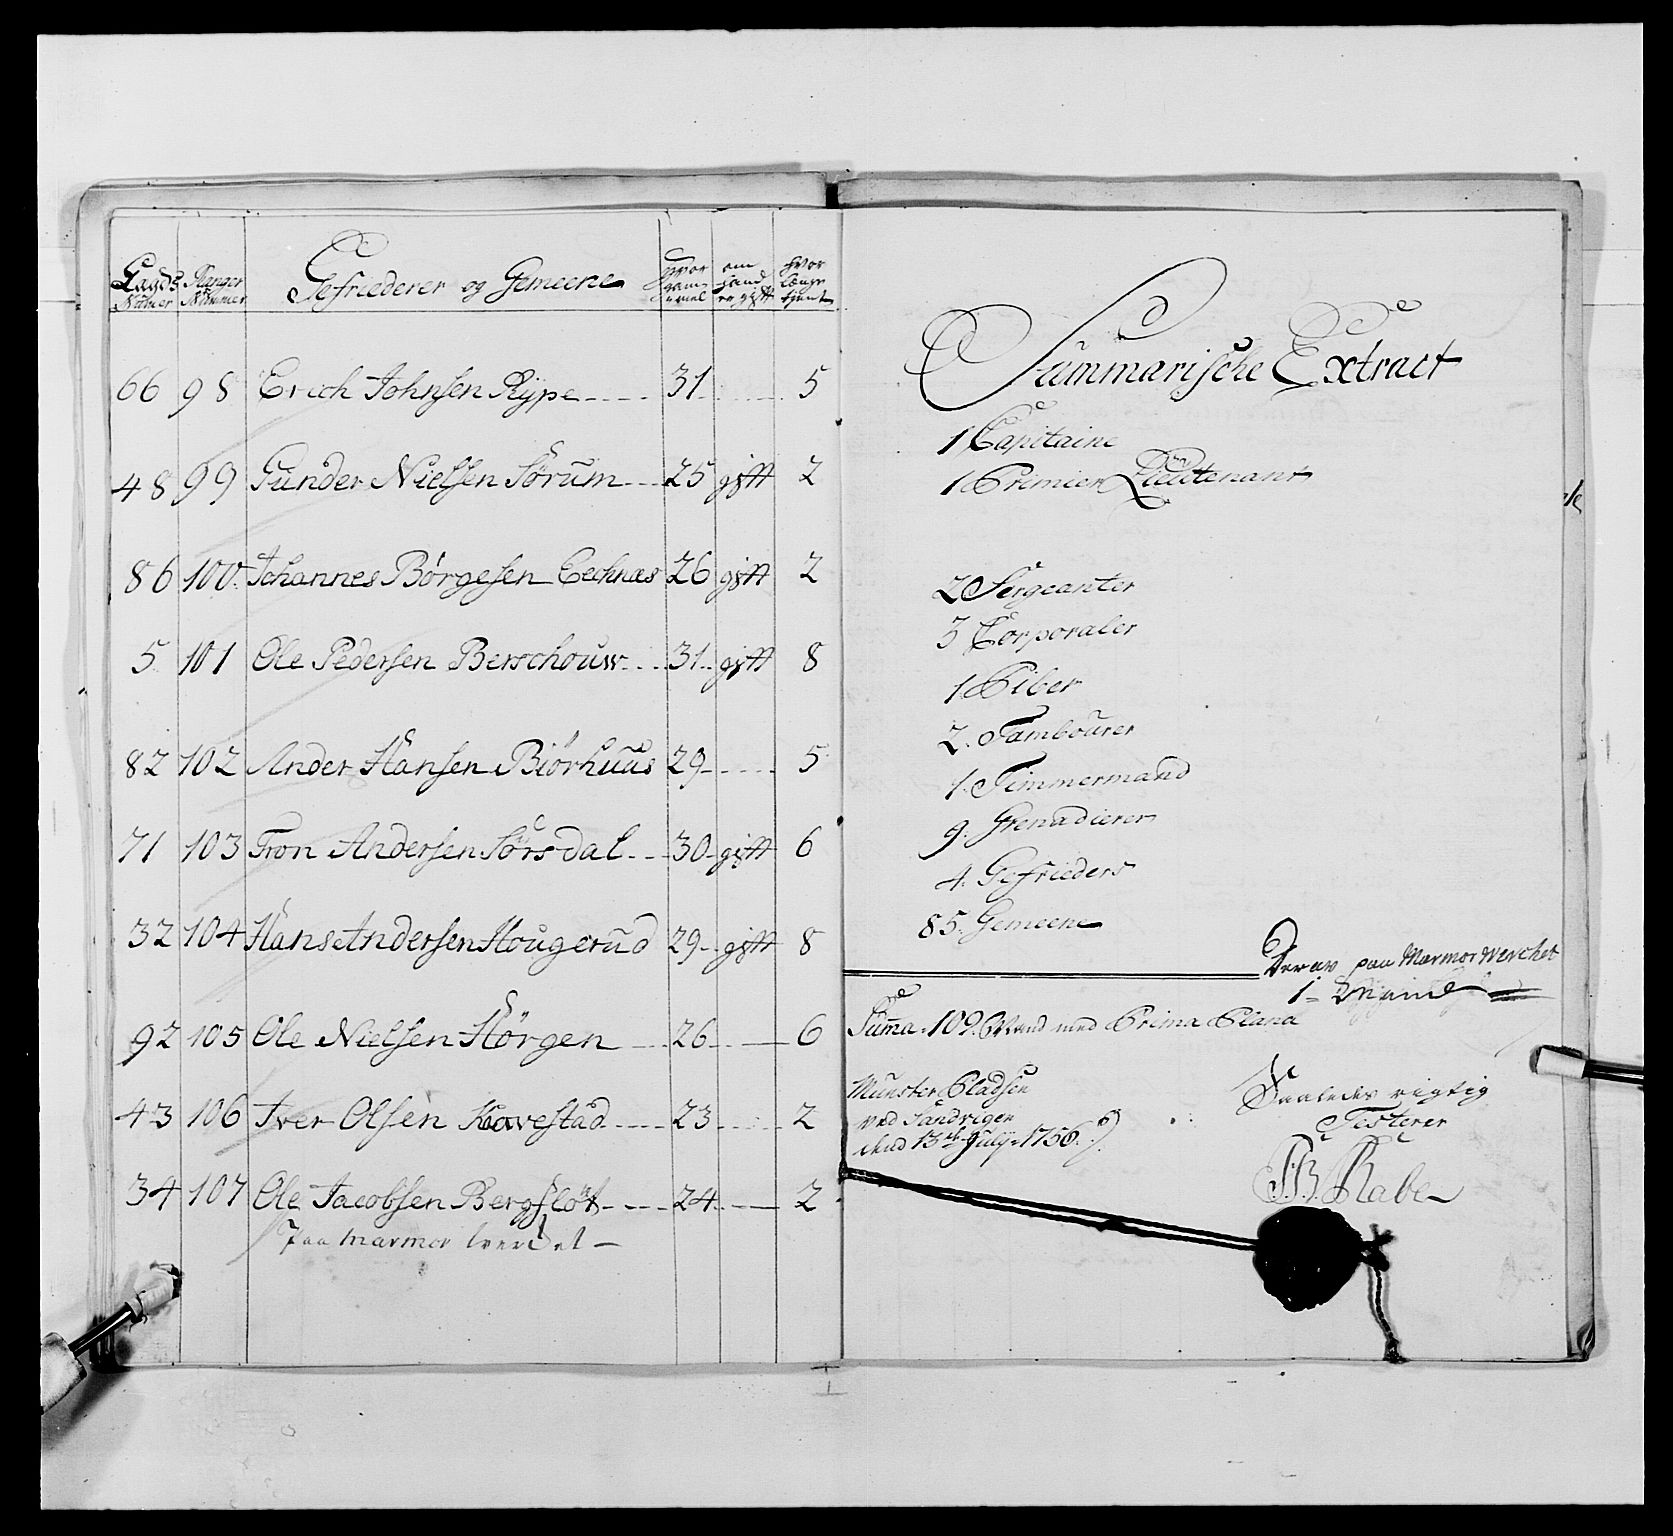 Lagds Numer | Ranger Nummer | Gefriederer og Gemeene | hvor gam- mel | om hand er gift | hvor længe tjent
66 98 Erich Johnsen Rype 31 5
48 99 Gunder Nielsen Sørum 25 gift 2
86 100 Johannes Børgesen Eechnæs 26 gift 2
5 101 Ole Pedersen Berschouw 31 gift 8
82 102 Ander Hansen Biørhuus 29 5
71 103 Tron Andersen Sørsdal 30 gift 6
32 104 Hans Andersen Hougerud 29 gift 8
92 105 Ole Nielsen Hørgen 26 6
43 106 Iver Olsen Kovestad 23 2
34 107 Ole Jacobsen Bergfløt 24 2
Paa Marmor Verchet
Summarische Extract
1 Capitaine
1 Primier Lieutenant
2 Sergeanter
3 Corporaler
1. Piber
2. Tambourer
1. Timmermand
9. Grenadierer
4. Gefrieders
85. Gemeene
Derav paa Marmor Verchet
1 = Mand
Summa. 109. Mand med Prima Plana
Munster Pladsen
ved Sandvigen
dend 13de July 1756.
Saaledes rigtig
Testerer
Rabe